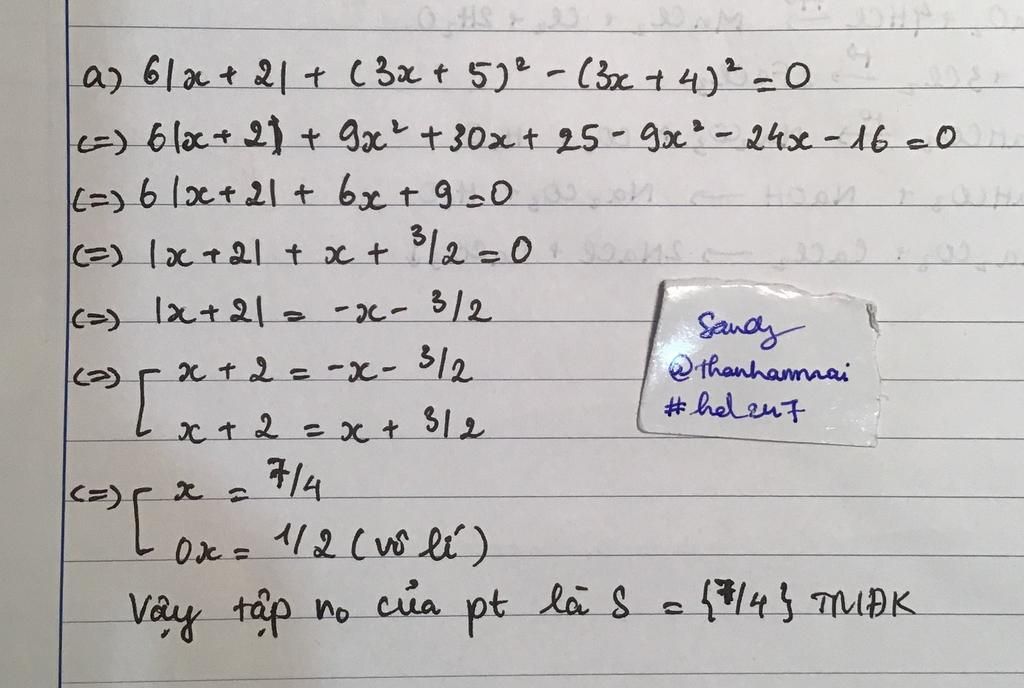 a) 6|x + 2| + (3x + 5)² - (3x + 4)² = 0
(=) 6|x + 2| + 9x² + 30x + 25 - 9x² - 24x - 16 = 0
(=) 6 |x + 2| + 6x + 9 = 0
(=) |x + 2| + x + 3/2 = 0
(=) |x + 2| = -x - 3/2
(=) [ x + 2 = -x - 3/2
x + 2 = x + 3/2
(=) [ x = 7/4
0x = 1/2 (vô lí)
Vậy tập no của pt là S = {7/4} TMĐK
Sandy
@thanhannnai